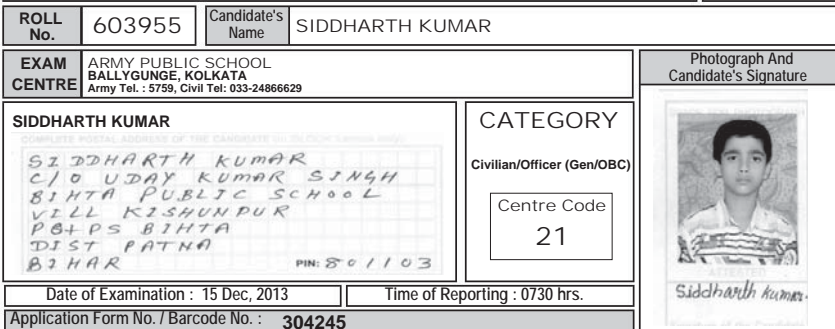 ROLL No. 603955 Candidate's Name SIDDHARTH KUMAR
EXAM CENTRE
ARMY PUBLIC SCHOOL
BALLYGUNGE, KOLKATA
Army Tel. : 5759, Civil Tel: 033-24866629
Photograph And
Candidate's Signature
SIDDHARTH KUMAR
COMPLETE POSTAL ADDRESS OF THE CANDIDATE
SIDDHARTH KUMAR
C/O UDAY KUMAR SINGH
BIHTA PUBLIC SCHOOL
VILL KISHUNPUR
PO+PS BIHTA
DIST PATNA
BIHAR PIN: 801103
CATEGORY
Civilian/Officer (Gen/OBC)
Centre Code
21
ATTESTED
Siddharth Kumar.
Date of Examination : 15 Dec, 2013 Time of Reporting : 0730 hrs.
Application Form No. / Barcode No. : 304245